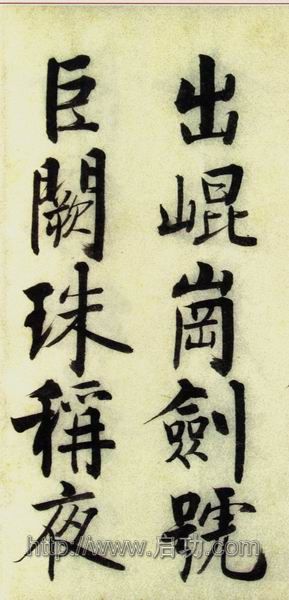 出崐崗劍號
巨闕珠稱夜
http://www.启功.com